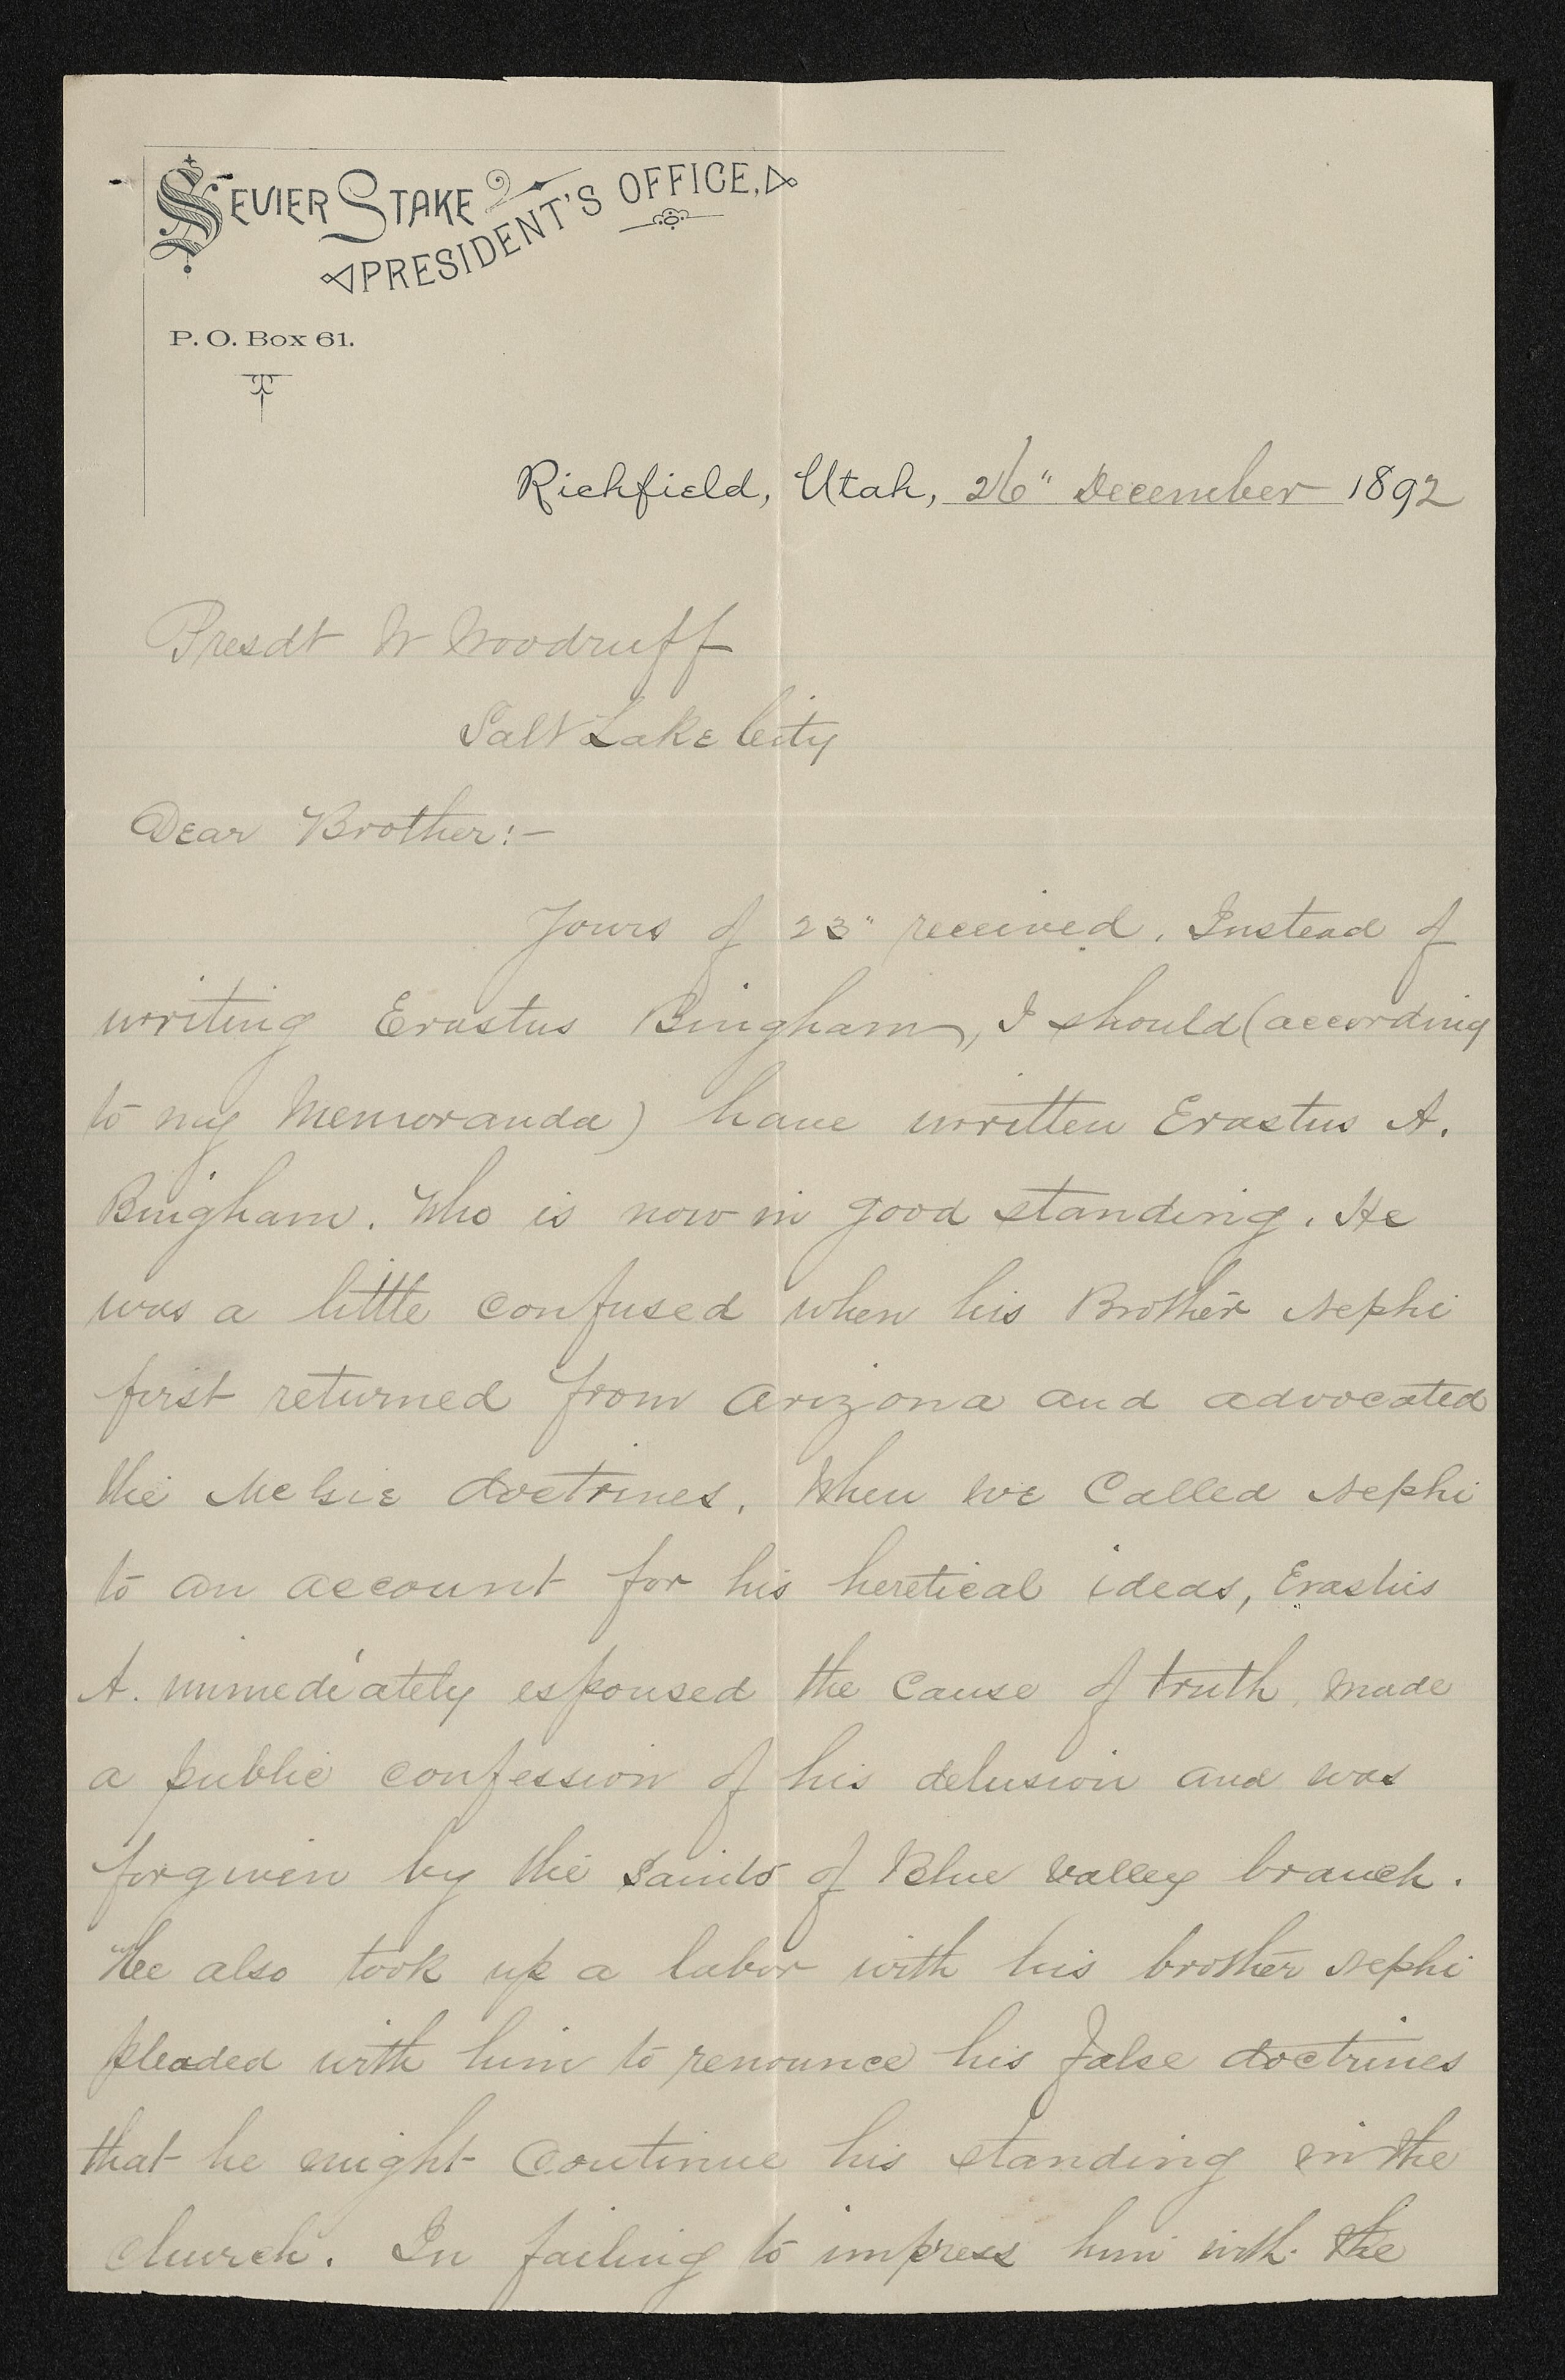 SEVIER STAKE
PRESIDENT'S OFFICE,
P. O. Box 61.
Richfield, Utah, 26" December 1892
Presdt W Woodruff
Salt Lake City
Dear Brother:-
Yours of 23" received. Instead of
writing Erastus Bingham, I should (according
to my Memoranda) have written Erastus A.
Bingham. Who is now in good standing. He
was a little confused when his Brother Nephi
first returned from Arizona and advocated
the doctrines. When we Called Nephi
to an account for his heretical ideas, Erastus
A. immediately espoused the cause of truth, made
a public confession of his delusion and was
forgiven by the Saints of Blue Valley branch.
He also took up a labor with his brother Nephi
pleaded with him to renounce his false doctrines
that he might Continue his standing in the
church. In failing to impress him with the